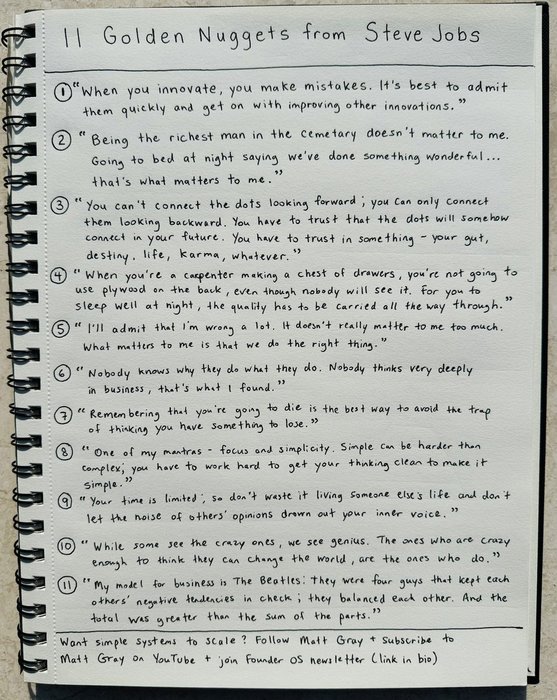 11 Golden Nuggets from Steve Jobs
① "When you innovate, you make mistakes. It's best to admit
them quickly and get on with improving other innovations."
② "Being the richest man in the cemetary doesn't matter to me.
Going to bed at night saying we've done something wonderful...
that's what matters to me."
③ "You can't connect the dots looking forward; you can only connect
them looking backward. You have to trust that the dots will somehow
connect in your future. You have to trust in something - your gut,
destiny, life, karma, whatever."
④ "When you're a carpenter making a chest of drawers, you're not going to
use plywood on the back, even though nobody will see it. For you to
sleep well at night, the quality has to be carried all the way through."
⑤ "I'll admit that I'm wrong a lot. It doesn't really matter to me too much.
What matters to me is that we do the right thing."
⑥ "Nobody knows why they do what they do. Nobody thinks very deeply
in business, that's what I found."
⑦ "Remembering that you're going to die is the best way to avoid the trap
of thinking you have something to lose."
⑧ "One of my mantras - focus and simplicity. Simple can be harder than
complex; you have to work hard to get your thinking clean to make it
simple."
⑨ "Your time is limited, so don't waste it living someone else's life and don't
let the noise of others' opinions drown out your inner voice."
⑩ "While some see the crazy ones, we see genius. The ones who are crazy
enough to think they can change the world, are the ones who do."
⑪ "My model for business is The Beatles: They were four guys that kept each
others' negative tendencies in check; they balanced each other. And the
total was greater than the sum of the parts."
Want simple systems to scale? Follow Matt Gray + Subscribe to
Matt Gray on YouTube + join Founder OS newsletter (link in bio)